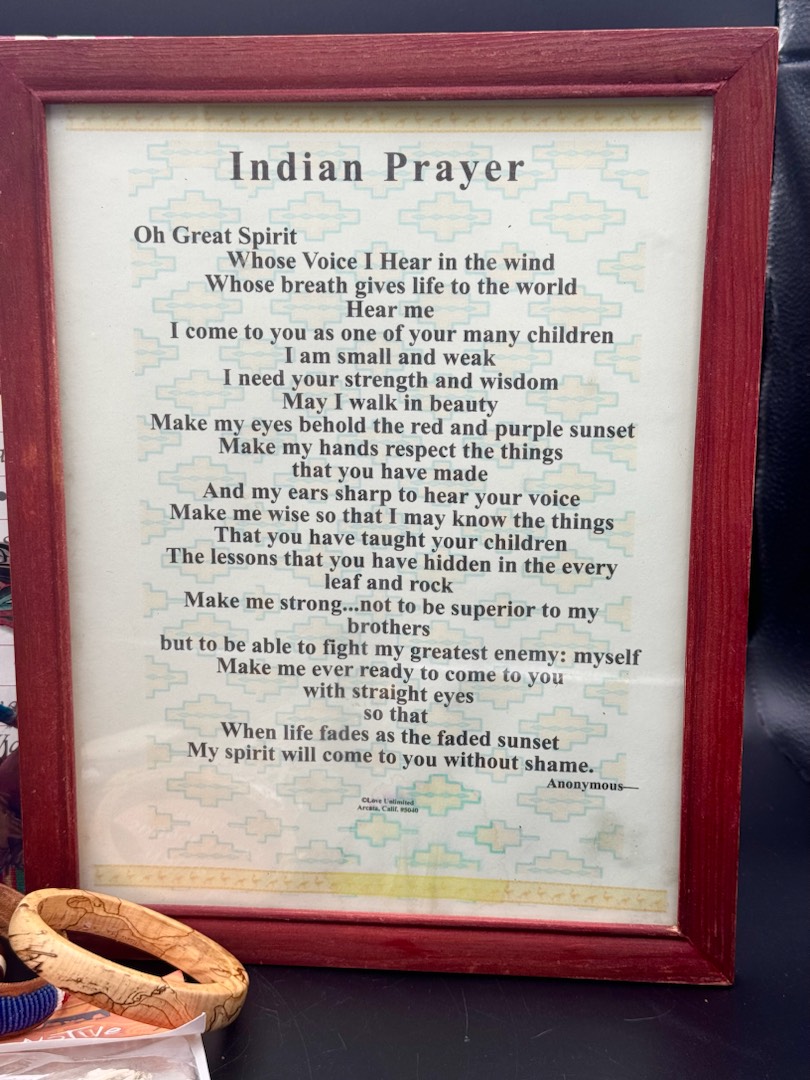 Indian Prayer
Oh Great Spirit
Whose Voice I Hear in the wind
Whose breath gives life to the world
Hear me
I come to you as one of your many children
I am small and weak
I need your strength and wisdom
May I walk in beauty
Make my eyes behold the red and purple sunset
Make my hands respect the things
that you have made
And my ears sharp to hear your voice
Make me wise so that I may know the things
That you have taught your children
The lessons that you have hidden in the every
leaf and rock
Make me strong...not to be superior to my
brothers
but to be able to fight my greatest enemy: myself
Make me ever ready to come to you
with straight eyes
so that
When life fades as the faded sunset
My spirit will come to you without shame.
Anonymous—
©Love Unlimited
Arcata, Calif. #5040